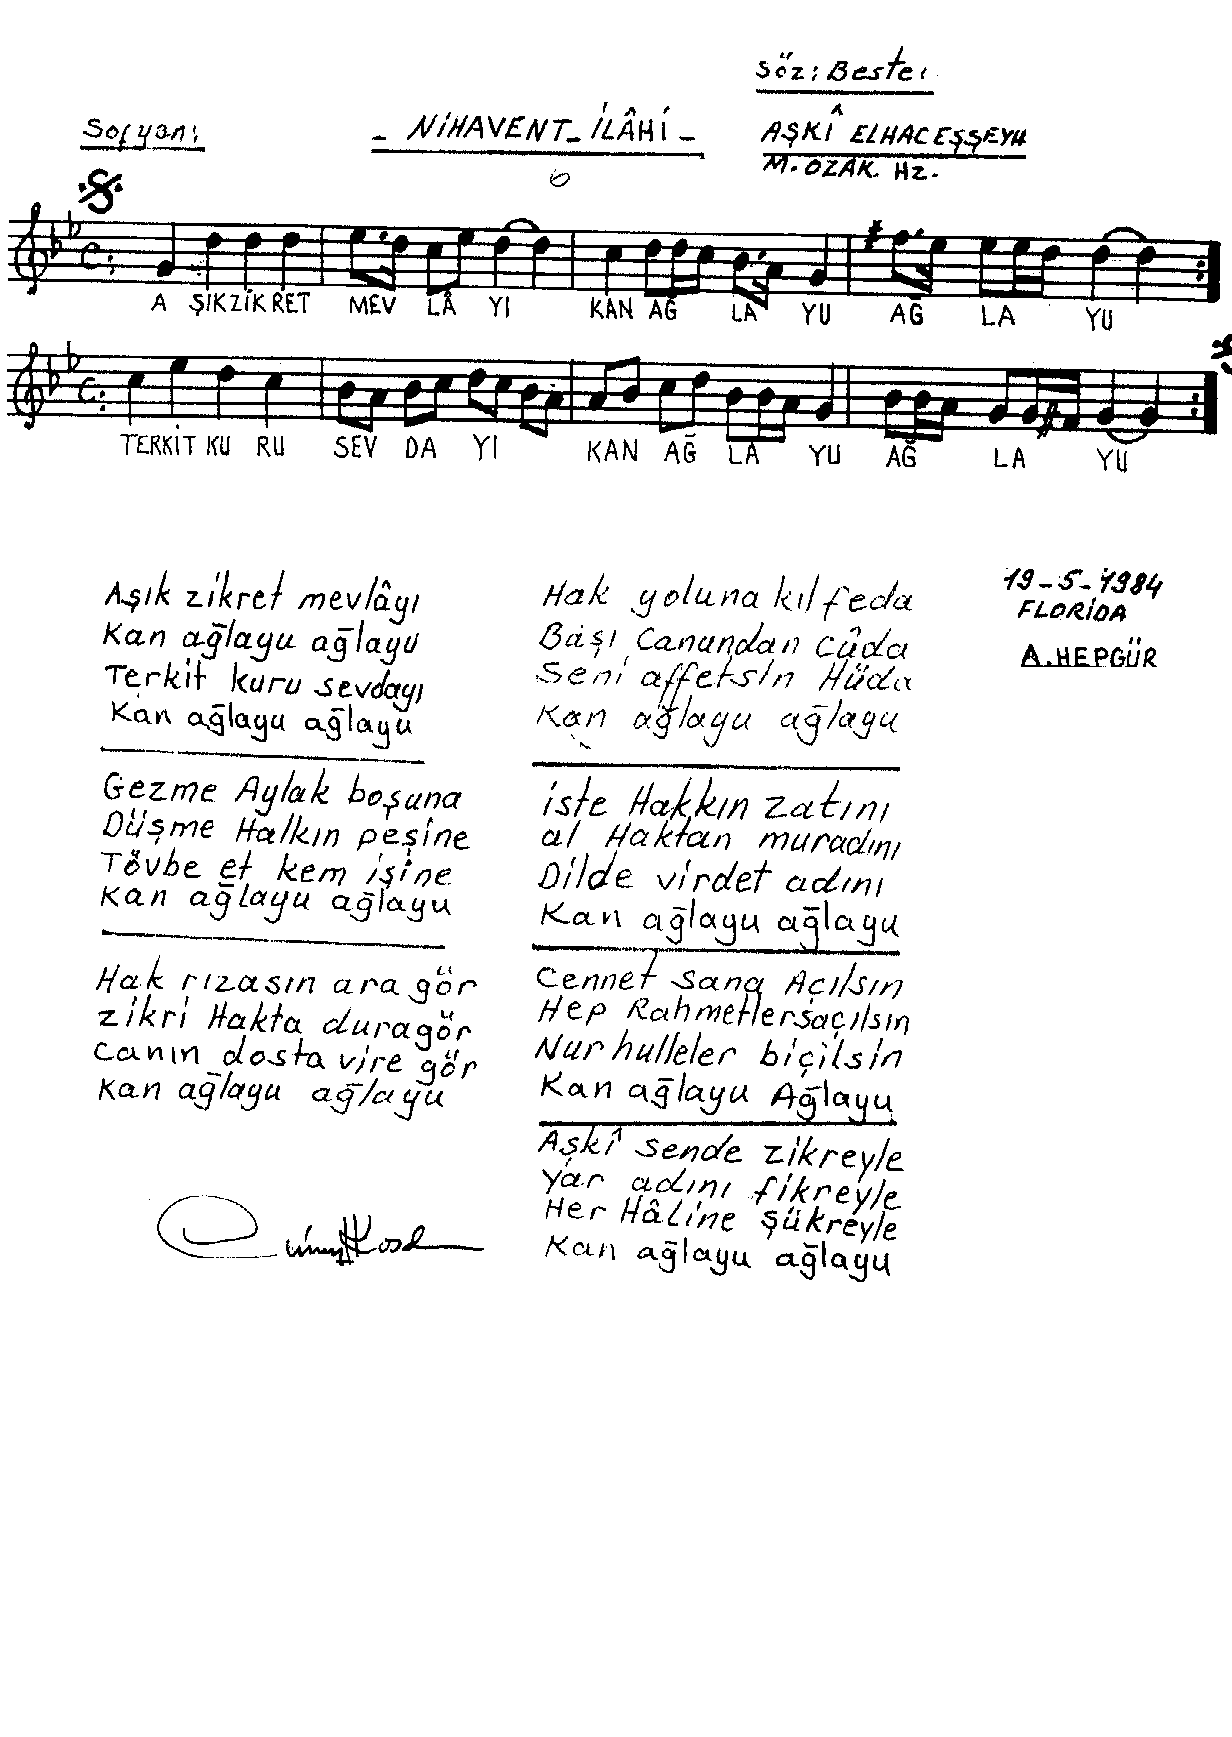 Söz: Beste:
Sofyan:
- NİHAVENT - İLÂHİ -
AŞKÎ ELHACEŞŞEYH
M. OZAK. Hz.
6
A ŞIK ZİK RET MEV LÂ YI KAN AĞ LA YU AĞ LA YU
TERKİT KU RU SEV DA YI KAN AĞ LA YU AĞ LA YU
Aşık zikret mevlâyı
Kan ağlayu ağlayu
Terkit kuru sevdayı
Kan ağlayu ağlayu
Gezme Aylak boşuna
Düşme Halkın peşine
Tövbe et kem işine
Kan ağlayu ağlayu
Hak rızasın ara gör
zikri Hakta duragör
Canın dosta vire gör
Kan ağlayu ağlayu
Hak yoluna kıl feda
Başı Canundan cûda
Seni affetsin Hüda
Kan ağlayu ağlayu
iste Hakkın zatını
al Haktan muradını
Dilde virdet adını
Kan ağlayu ağlayu
Cennet sana Açılsın
Hep Rahmetlersaçılsın
Nur hulleler biçilsin
Kan ağlayu Ağlayu
Aşkî sende zikreyle
Yar adını fikreyle
Her Hâline şükreyle
Kan ağlayu ağlayu
19-5-1984
FLORİDA
A.HEPGÜR